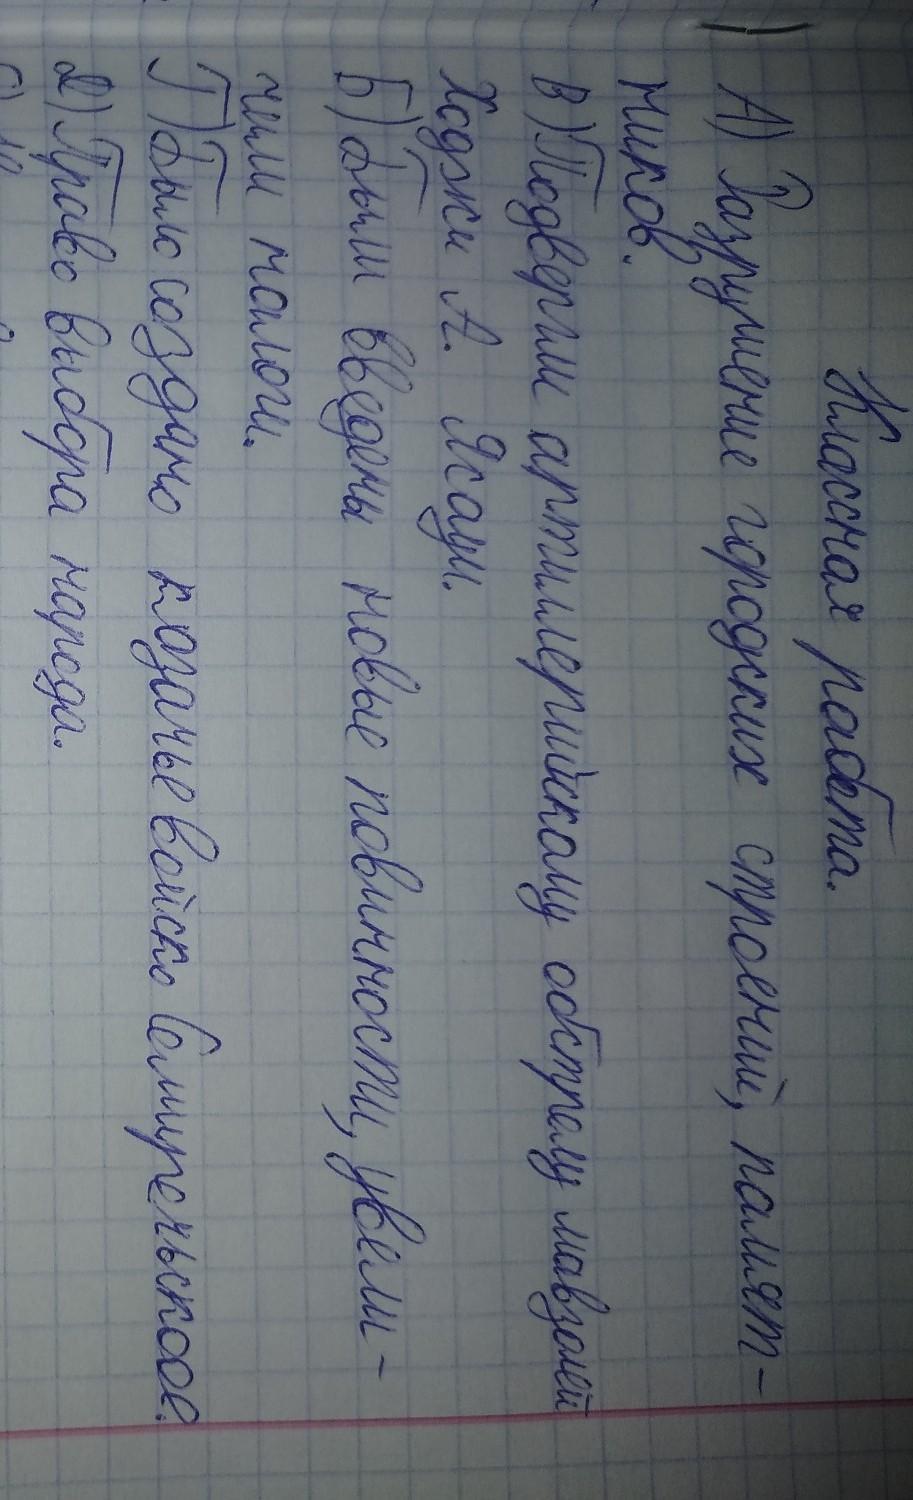 Классная работа.
А) Разрушение городских строений, памят-
ников.
В) Подвергли артиллерийскому обстрелу мавзолей
Ходжи А. Ясауи.
Б) Были введены новые повинности, увели-
чили налоги.
Г) Было создано казачье войско Семиреческое.
Д) Право выбора народа.